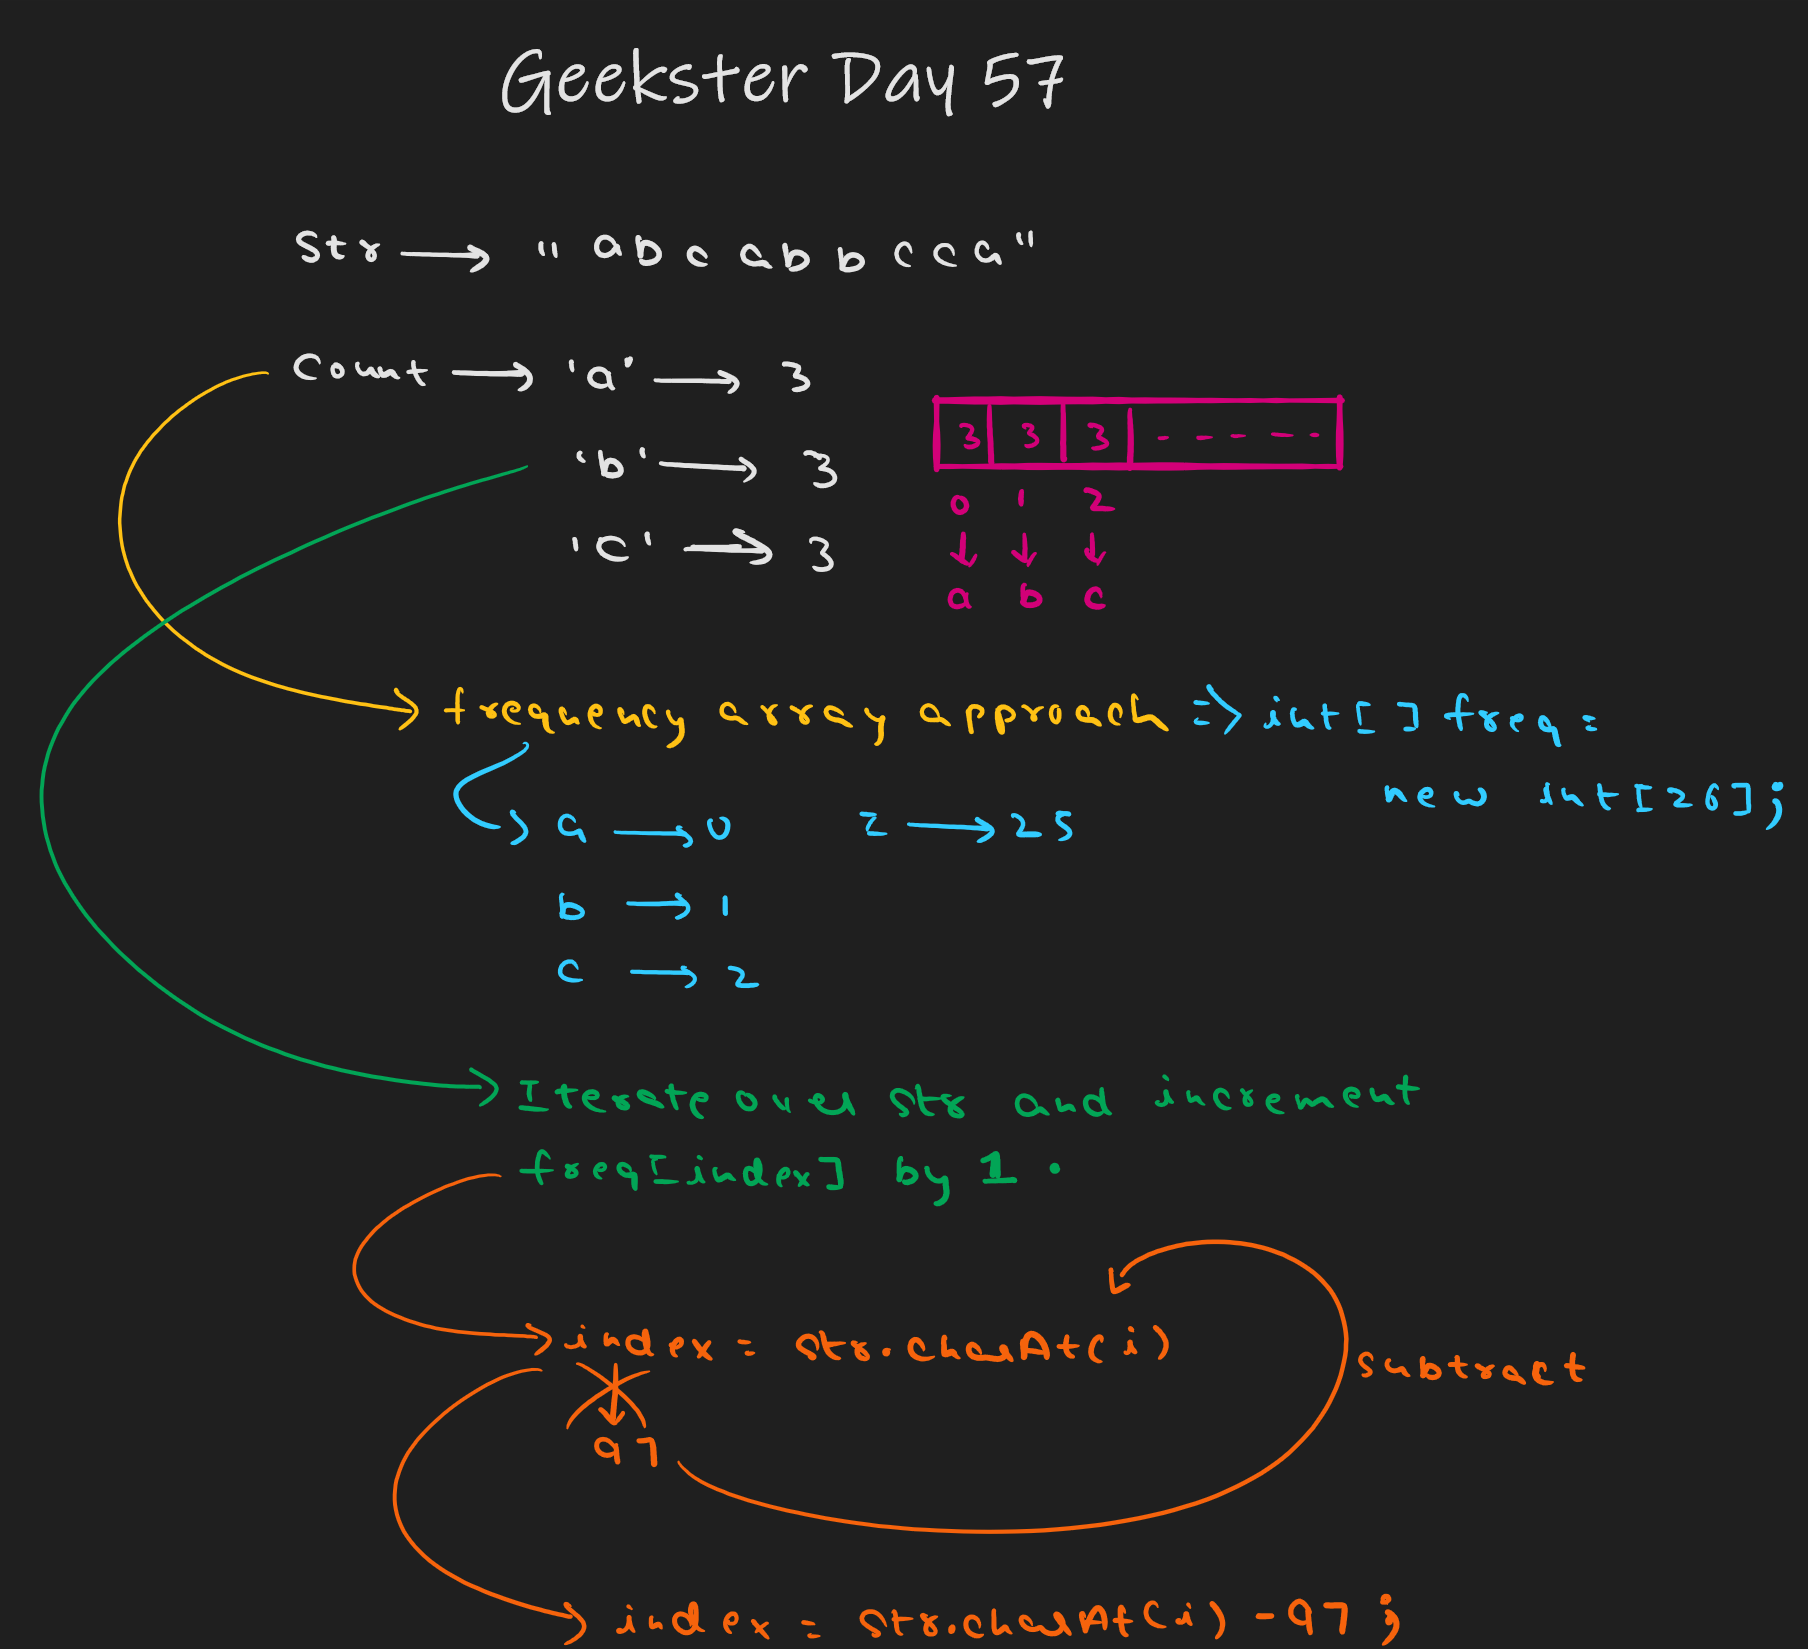 Geekster Day 57
Str → " a b c a b b c c a "
Count → 'a' → 3
'b' → 3
'c' → 3
3 3 3 - - - - -
0 1 2
↓ ↓ ↓
a b c
frequency array approach => int[ ] freq =
new int[26];
a → 0 z → 25
b → 1
c → 2
Iterate over str and increment
freq[index] by 1.
index = str.charAt(i)
subtract
97
index = str.charAt(i) - 97;